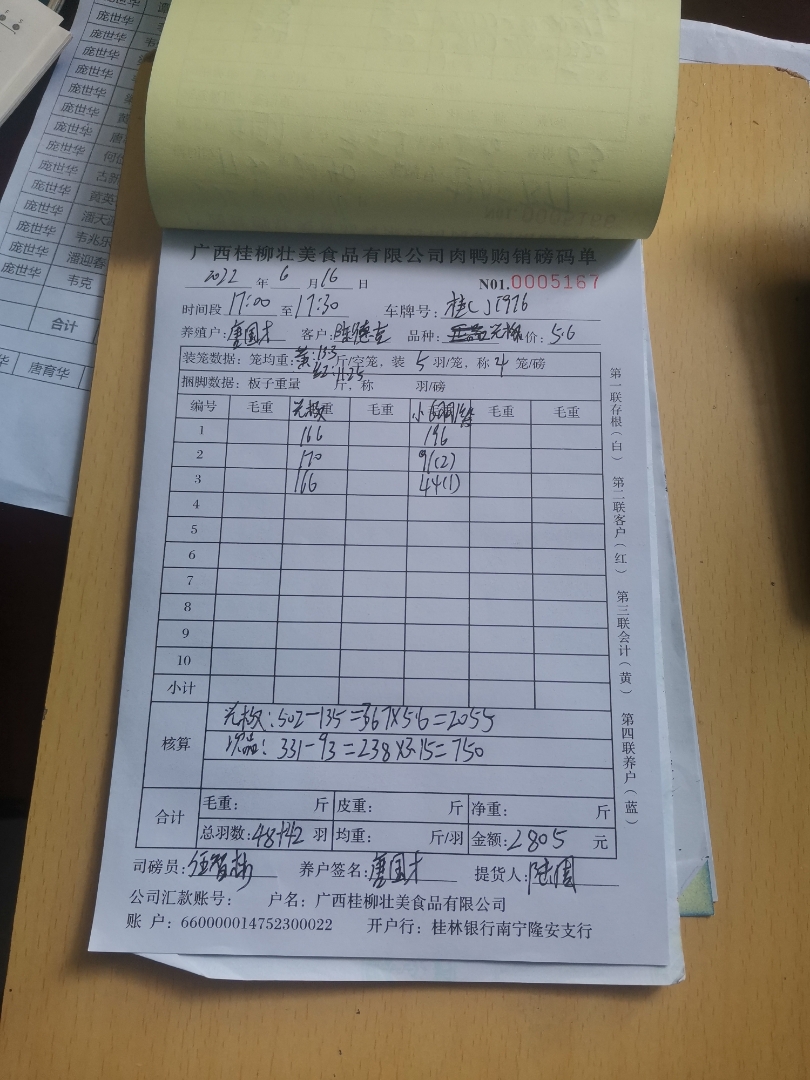 庞世华
庞世华
庞世华
庞世华
庞世华
庞世华
庞世华
庞世华
庞世华 古新
庞世华 黄英
庞世华 潘天
庞世华 韦兆乐
庞世华 潘迎春
韦克
合计
华 唐育华
广西桂柳壮美食品有限公司肉鸭购销磅码单
2022 年 6 月 16 日 N01.0005167
时间段 17:00 至 17:30 车牌号：桂
养殖户：唐国才 客户：陆德 品种： 光板 价：5.6
装笼数据：笼均重：黄:13.3 斤/空笼，装 5 羽/笼，称 4 笼/磅
红:11.25
捆脚数据：板子重量 斤，称 羽/磅
编号 毛重 光板 毛重 毛重 小 毛重 毛重
1 166 196
2 170 91(2)
3 166 44(1)
4
5
6
7
8
9
10
小计
核算 光板：502-135=367×5.6=2055
次品：331-93=238×3.15=750
合计 毛重： 斤 皮重： 斤 净重： 斤
总羽数：48+42 羽 均重： 斤/羽 金额：2805 元
司磅员： 养户签名：唐国才 提货人：陆
公司汇款账号： 户名：广西桂柳壮美食品有限公司
账 户：660000014752300022 开户行：桂林银行南宁隆安支行
第一联存根（白） 第二联客户（红） 第三联会计（黄） 第四联养户（蓝）